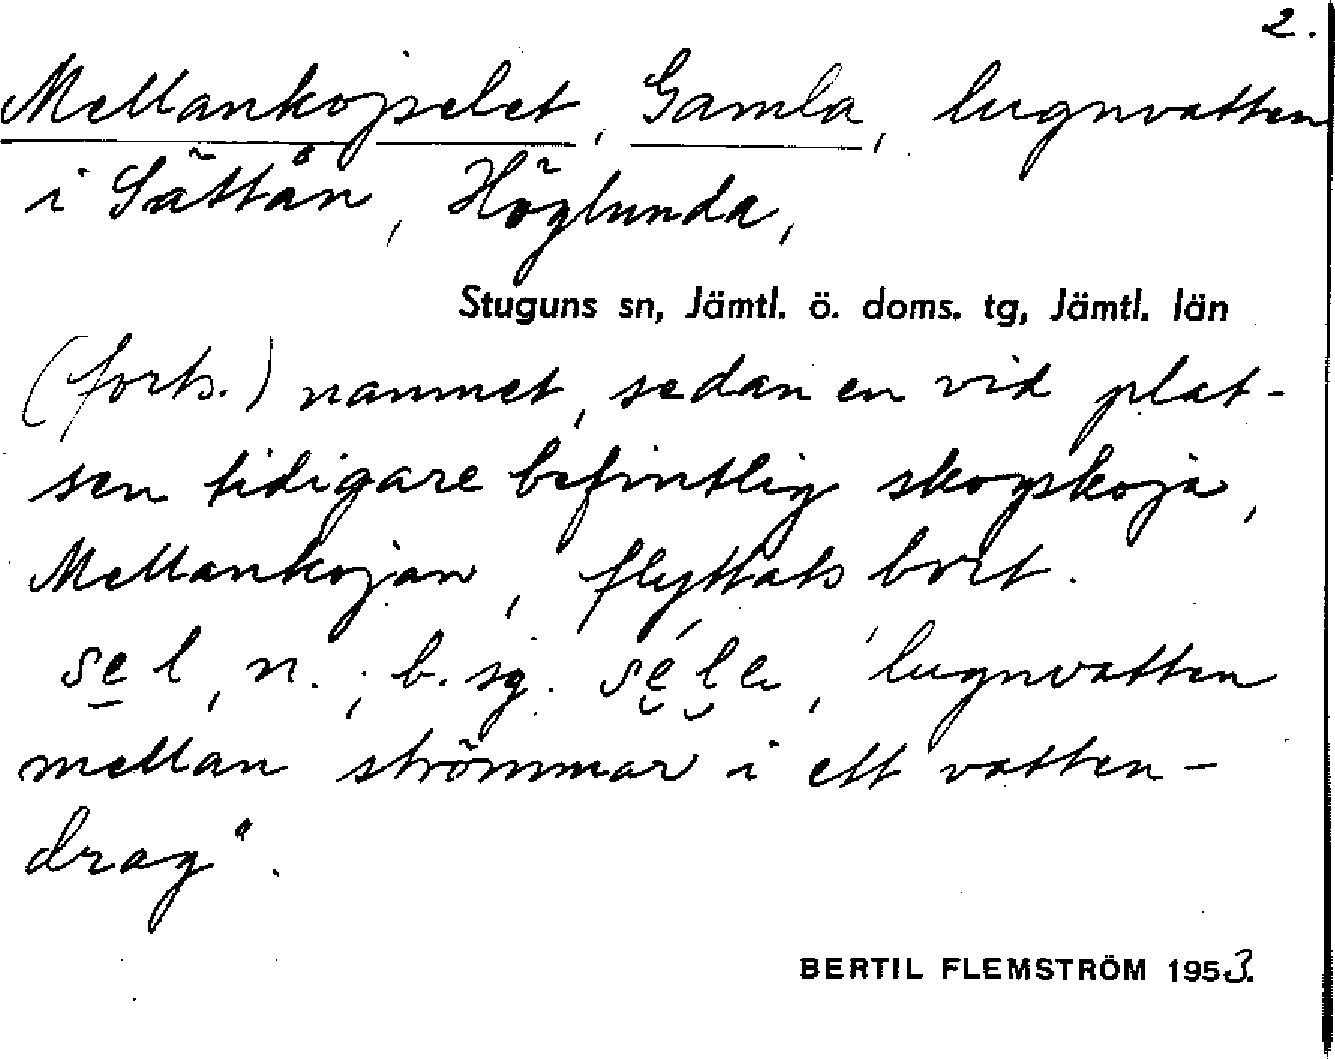 2.
Mellankojselet, Gamla, lugnvatten
i Sättån, Höglunda,
Stuguns sn, Jämtl. ö. doms. tg, Jämtl. län
(forts.) namnet, sedan en vid plat-
sen tidigare befintlig skogskoja,
Mellankojan, flyttats bort.
sel, n.; b. sg. séle, 'lugnvatten
mellan strömmar i ett vatten-
drag'.
BERTIL FLEMSTRÖM 1953.